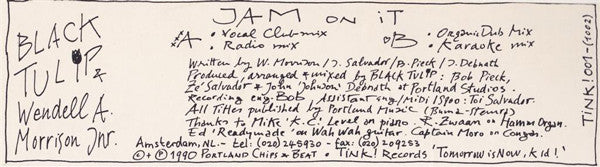 BLACK
TULIP
&
Wendell A.
Morrison Jnr.
JAM ON IT
A • Vocal Clubmix
• Radio mix
B • Organic Dub Mix
• Karaoke mix
Written by W. Morrison / J. Salvador / B. Pieck / J. Debnath
Produced, arranged & mixed by BLACK TULIP: Bob Pieck,
Ze' Salvador & John 'Johnson' Debnath at Portland Studios.
Recording eng: Bob / Assistant eng/Midi/S900: Toi Salvador.
All Titles published by Portland Music / (Buma-stemra)
Thanks to Mike 'K.C.' Level on piano. R. Zwaan on Hamm. Organ.
Ed 'Readymade' on WahWah guitar. Captain Moro on Congas.
Amsterdam, NL. - tel: (020) 245930 - fax: (020) 209253
© + ℗ 1990 PORTLAND CHIPS & BEAT • TINK! Records 'Tomorrow is Now, Kid!'
TINK! 001 - (1002)